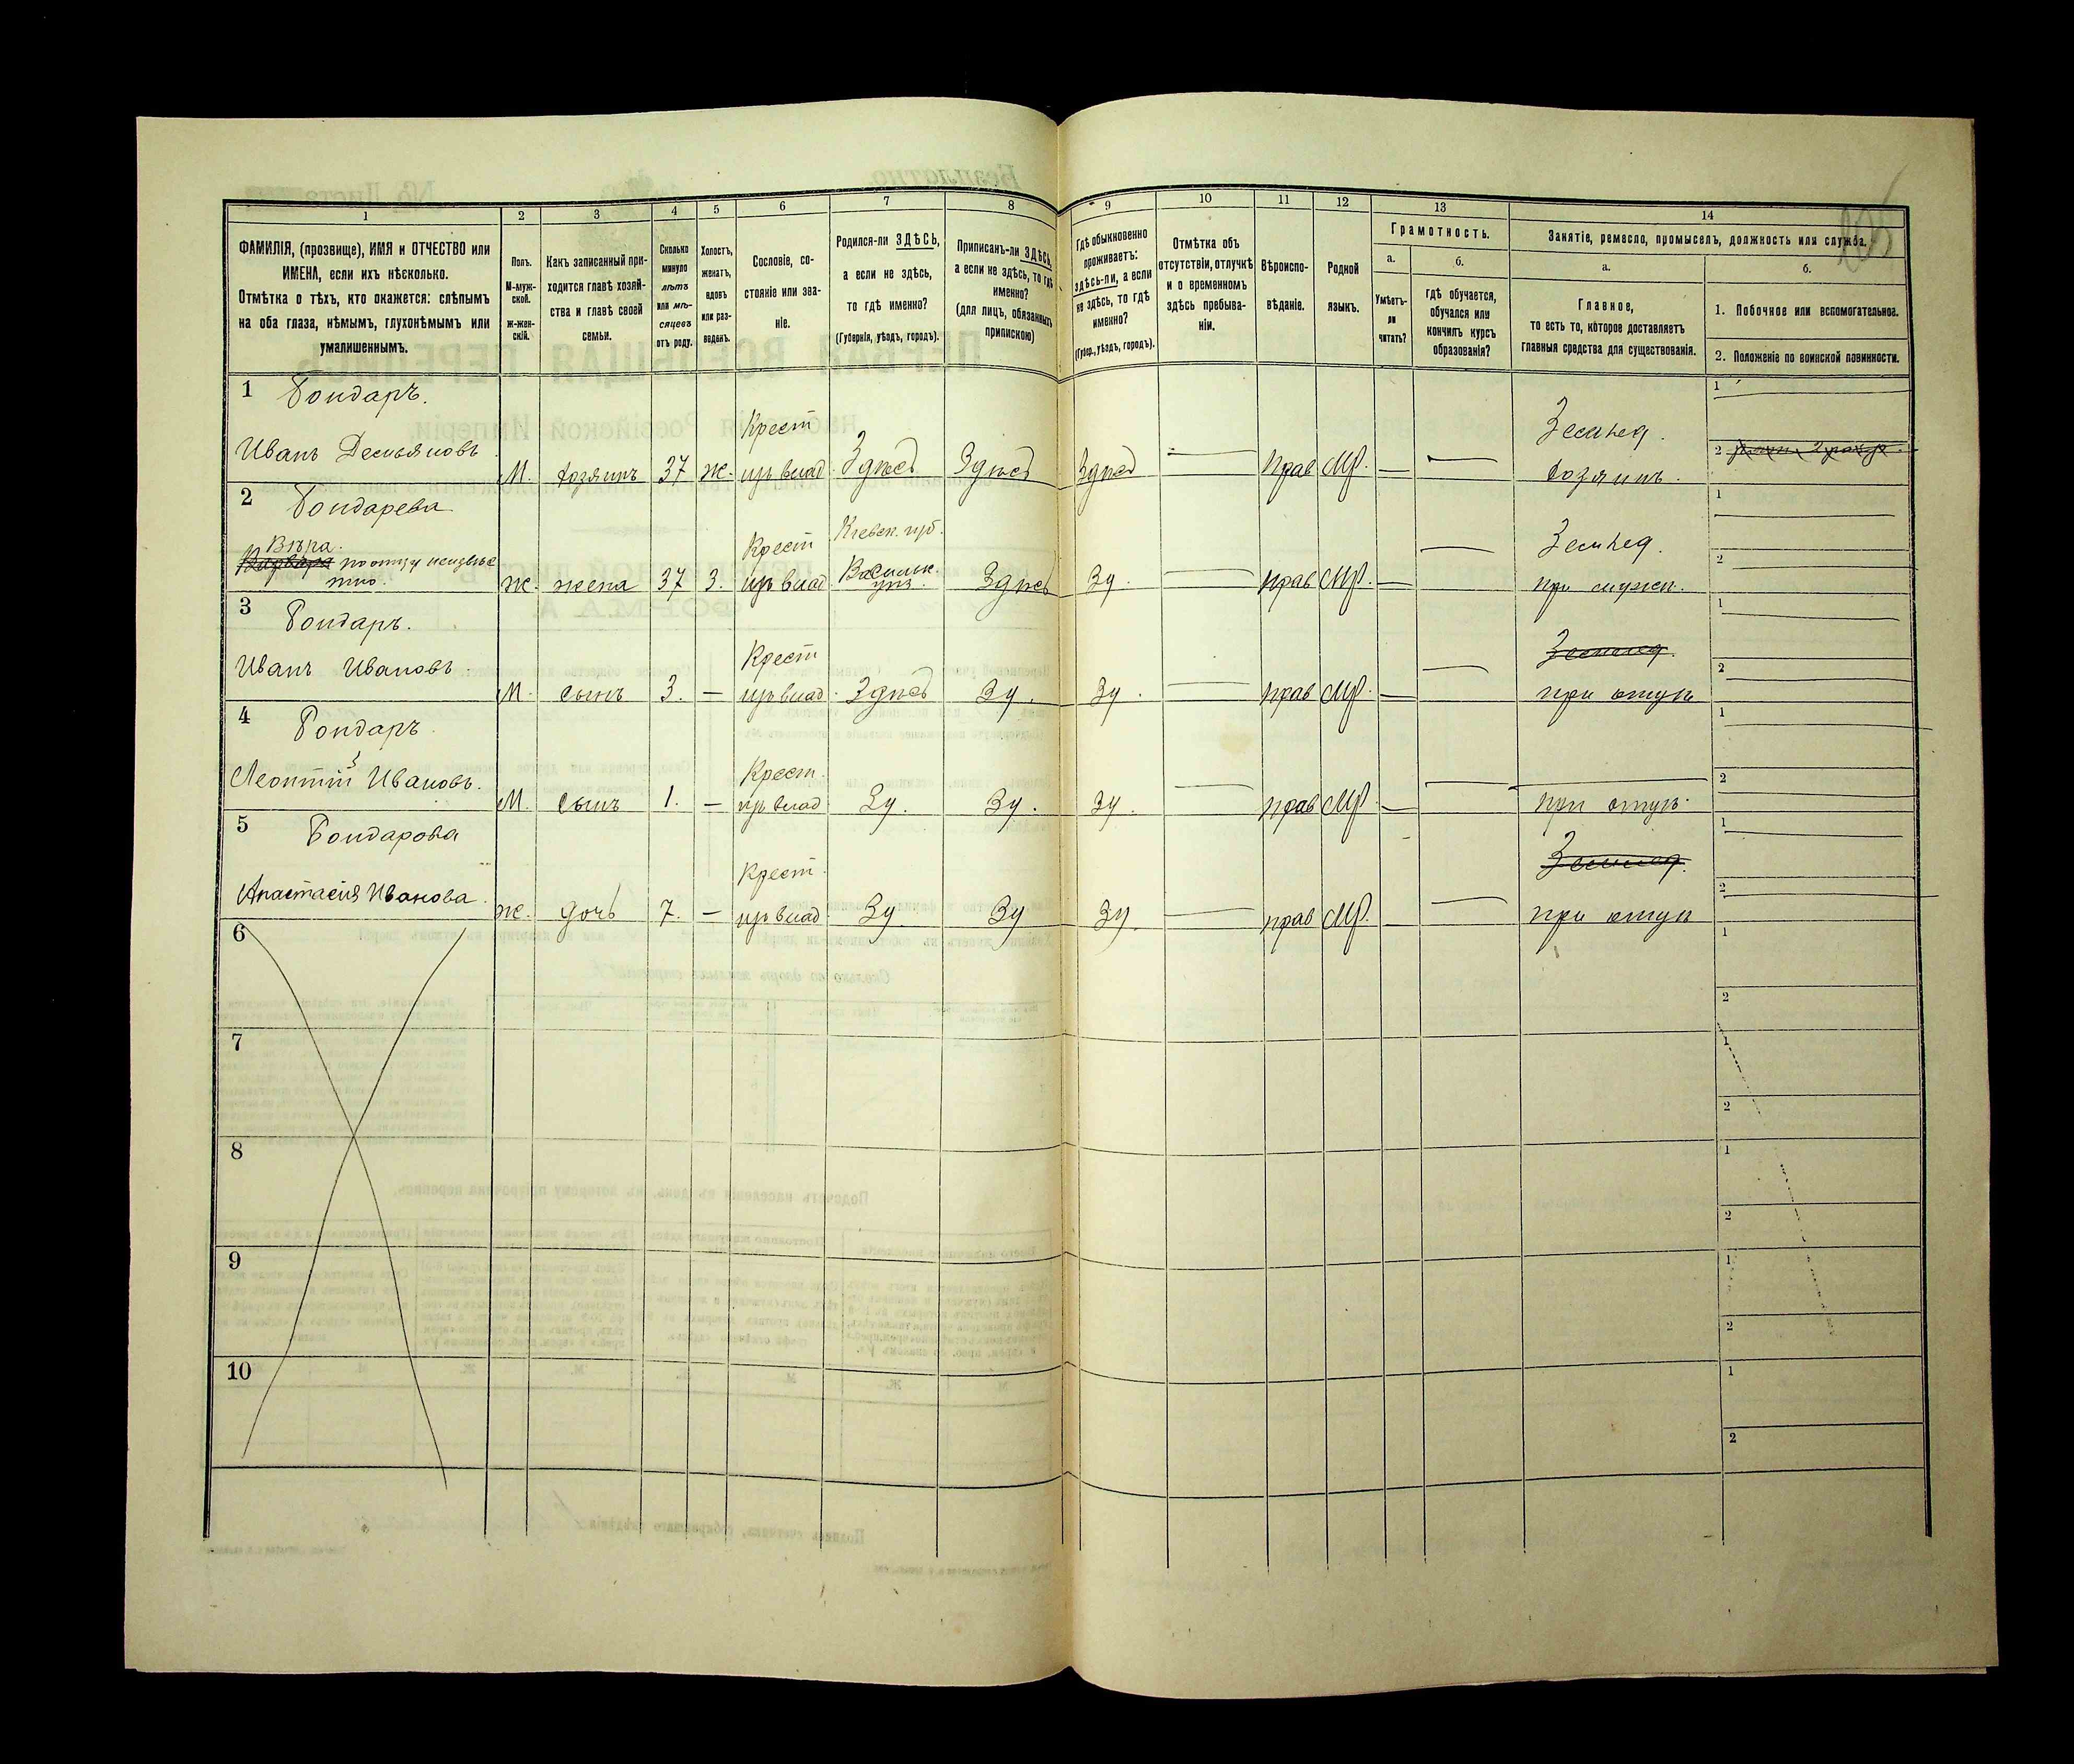 1 2 3 4 5 6 7 8 9 10 11 12 13 14
ФАМИЛІЯ, (прозвище), ИМЯ и ОТЧЕСТВО или
ИМЕНА, если ихъ нѣсколько.
Отмѣтка о тѣхъ, кто окажется: слѣпымъ
на оба глаза, нѣмымъ, глухонѣмымъ или
умалишеннымъ.
Полъ.
М-муж-
ской.
ж-жен-
скій.
Какъ записанный при-
ходится главѣ хозяй-
ства и главѣ своей
семьи.
Сколько
минуло
лѣтъ
или мѣ-
сяцевъ
отъ роду.
Холостъ,
женатъ,
вдовъ
или раз-
веденъ.
Сословіе, со-
стояніе или зва-
ніе.
Родился-ли ЗДѢСЬ,
а если не здѣсь,
то гдѣ именно?
(Губернія, уѣздъ, городъ).
Приписанъ-ли ЗДѢСЬ,
а если не здѣсь, то гдѣ
именно?
(для лицъ, обязанныхъ
припискою)
Гдѣ обыкновенно
проживаетъ:
здѣсь-ли, а если
не здѣсь, то гдѣ
именно?
(Губер., уѣздъ, городъ).
Отмѣтка объ
отсутствіи, отлучкѣ
и о временномъ
здѣсь пребыва-
ніи.
Вѣроиспо-
вѣданіе.
Родной
языкъ.
Грамотность.
а.
Умѣетъ-
ли
читать?
б.
гдѣ обучается,
обучался или
кончилъ курсъ
образованія?
Занятіе, ремесло, промыселъ, должность или служба.
а.
Главное,
то есть то, которое доставляетъ
главныя средства для существованія.
б.
1. Побочное или вспомогательное.
2. Положеніе по воинской повинности.
1 Бондаръ. Крест Землед. 1
Иванъ Демьяновъ М. хозяинъ 37 ж. изъ влад. Здѣсь Здѣсь Здѣсь — Прав Мр. — — Хозяинъ. 2
2 Бондарева Крест Кіевск. губ. Землед. 1
Вѣра.
Варвара по отцу неизвѣс
тно. ж. жена 37 З. изъ влад Васильк. уѣз. Здѣсь Зд. — прав Мр. — — при мужѣ. 2
3 Бондаръ. Крест Землед. 1
Иванъ Ивановъ М. сынъ 3. — изъ влад. Здѣсь Зд. Зд. — прав Мр. — — при отцѣ 2
4 Бондаръ Крест. 1
Леонтій Ивановъ. М. сынъ 1. — изъ влад Зд. Зд. Зд. — прав Мр. — — при отцѣ. 2
5 Бондарова Крест Землед. 1
Анастасія Иванова ж. дочь 7. — изъ влад Зд. Зд Зд. — прав Мр. — — при отцѣ 2
6 1
2
7 1
2
8 1
2
9 1
2
10 1
2